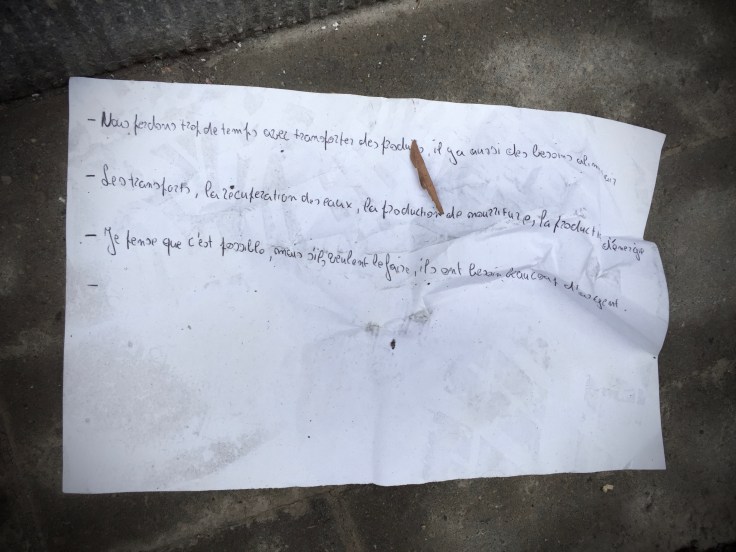 - Nous perdons trop de temps avec transporter des produits, il y a aussi des besoins
- Les transports, la récuperation des eaux, la production de nourriture, la production d'énergie
- Je pense que c'est possible, mais s'ils veulent le faire, ils ont besoin beaucoup d'argent.
-